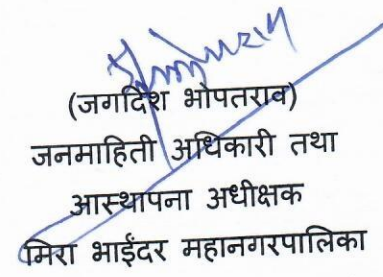 (जगदिश भोपतराव)
जनमाहिती अधिकारी तथा
आस्थापना अधीक्षक
मिरा भाईंदर महानगरपालिका